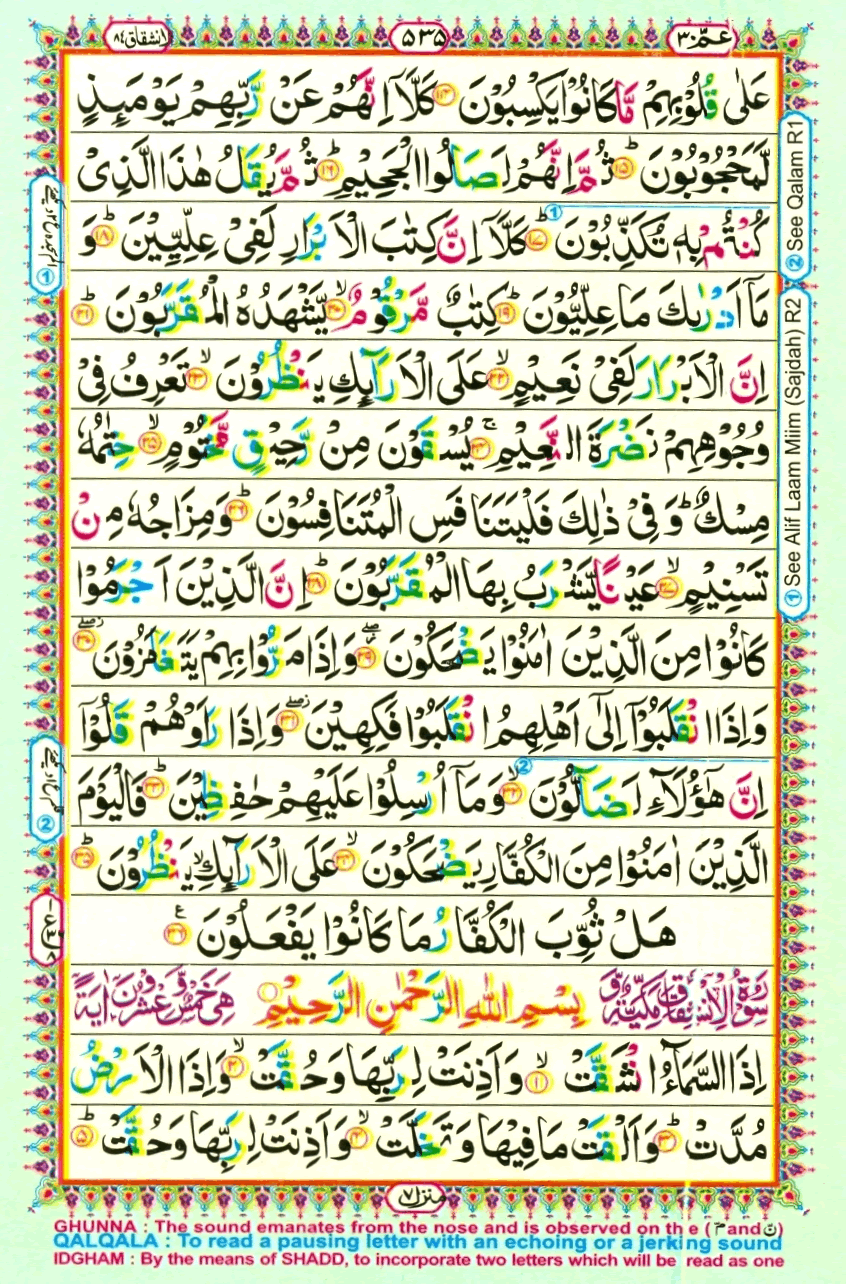 عَمّ ٣٠
٥٣٥
الانشقاق ٨٤
عَلٰى قُلُوْبِهِمْ مَّا كَانُوْا يَكْسِبُوْنَ ﴿۱۴﴾ كَلَّاۤ اِنَّهُمْ عَنْ رَّبِّهِمْ يَوْمَىِٕذٍ
لَّمَحْجُوْبُوْنَ ﴿۱۵﴾ ؕ ثُمَّ اِنَّهُمْ لَصَالُوا الْجَحِيْمِ ﴿۱۶﴾ ؕ ثُمَّ يُقَالُ هٰذَا الَّذِىْ
كُنْتُمْ بِهٖ تُكَذِّبُوْنَ ﴿۱۷﴾ ؕ كَلَّاۤ اِنَّ كِتٰبَ الْاَبْرَارِ لَفِىْ عِلِّيِّيْنَ ﴿۱۸﴾ ؕ وَ
مَاۤ اَدْرٰىكَ مَا عِلِّيُّوْنَ ﴿۱۹﴾ ؕ كِتٰبٌ مَّرْقُوْمٌ ﴿۲۰﴾ ۙ يَّشْهَدُهُ الْمُقَرَّبُوْنَ ﴿۲۱﴾ ؕ
اِنَّ الْاَبْرَارَ لَفِىْ نَعِيْمٍ ﴿۲۲﴾ ۙ عَلَى الْاَرَآىِٕكِ يَنْظُرُوْنَ ﴿۲۳﴾ ۙ تَعْرِفُ فِىْ
وُجُوْهِهِمْ نَضْرَةَ النَّعِيْمِ ﴿۲۴﴾ ۚ يُسْقَوْنَ مِنْ رَّحِيْقٍ مَّخْتُوْمٍ ﴿۲۵﴾ ۙ خِتٰمُهٗ
مِسْكٌ ؕ وَفِىْ ذٰلِكَ فَلْيَتَنَافَسِ الْمُتَنَافِسُوْنَ ﴿۲۶﴾ ؕ وَمِزَاجُهٗ مِنْ
تَسْنِيْمٍ ﴿۲۷﴾ ۙ عَيْنًا يَّشْرَبُ بِهَا الْمُقَرَّبُوْنَ ﴿۲۸﴾ ؕ اِنَّ الَّذِيْنَ اَجْرَمُوْا
كَانُوْا مِنَ الَّذِيْنَ اٰمَنُوْا يَضْحَكُوْنَ ﴿۲۹﴾ وَاِذَا مَرُّوْا بِهِمْ يَتَغَامَزُوْنَ ﴿۳۰﴾
وَاِذَا انْقَلَبُوْۤا اِلٰٓى اَهْلِهِمُ انْقَلَبُوْا فَكِهِيْنَ ﴿۳۱﴾ وَاِذَا رَاَوْهُمْ قَالُوْۤا
اِنَّ هٰۤؤُلَآءِ لَضَآلُّوْنَ ﴿۳۲﴾ ۙ وَمَاۤ اُرْسِلُوْا عَلَيْهِمْ حٰفِظِيْنَ ﴿۳۳﴾ ؕ فَالْيَوْمَ
الَّذِيْنَ اٰمَنُوْا مِنَ الْكُفَّارِ يَضْحَكُوْنَ ﴿۳۴﴾ ۙ عَلَى الْاَرَآىِٕكِ ۙ يَنْظُرُوْنَ ﴿۳۵﴾ ؕ
هَلْ ثُوِّبَ الْكُفَّارُ مَا كَانُوْا يَفْعَلُوْنَ ﴿۳۶﴾ ع
سُوْرَةُ الْاِنْشِقَاقِ مَكِّيَّةٌ وَّ بِسْمِ اللّٰهِ الرَّحْمٰنِ الرَّحِيْمِ هِىَ خَمْسٌ وَّعِشْرُوْنَ اٰيَةً
اِذَا السَّمَآءُ انْشَقَّتْ ﴿۱﴾ ۙ وَاَذِنَتْ لِرَبِّهَا وَحُقَّتْ ﴿۲﴾ ۙ وَاِذَا الْاَرْضُ
مُدَّتْ ﴿۳﴾ ؕ وَاَلْقَتْ مَا فِيْهَا وَتَخَلَّتْ ﴿۴﴾ ۙ وَاَذِنَتْ لِرَبِّهَا وَحُقَّتْ ﴿۵﴾ ؕ
② See Qalam R1
① See Alif Laam Miim (Sajdah) R2
①
②
منزل ٧
GHUNNA : The sound emanates from the nose and is observed on the (م and ن)
QALQALA : To read a pausing letter with an echoing or a jerking sound
IDGHAM : By the means of SHADD, to incorporate two letters which will be read as one